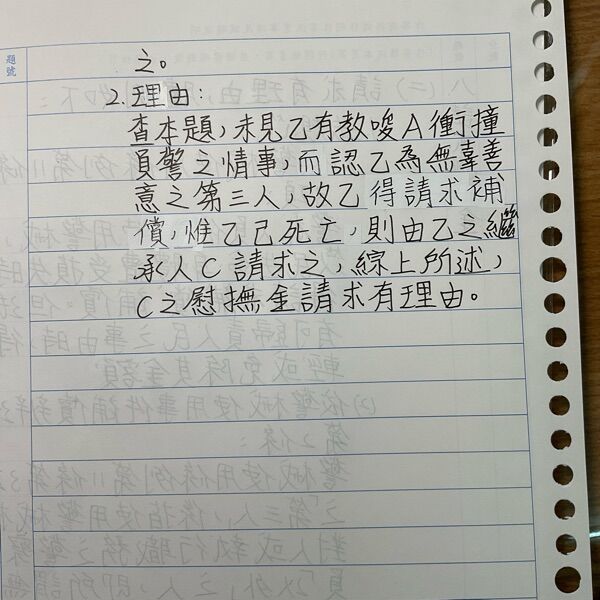 題號
之。
2.理由:
查本題,未見乙有教唆A衝撞
員警之情事,而認乙為無辜善
意之第三人,故乙得請求補
償,惟乙已死亡,則由乙之繼
承人C請求之,綜上所述,
C之慰撫金請求有理由。